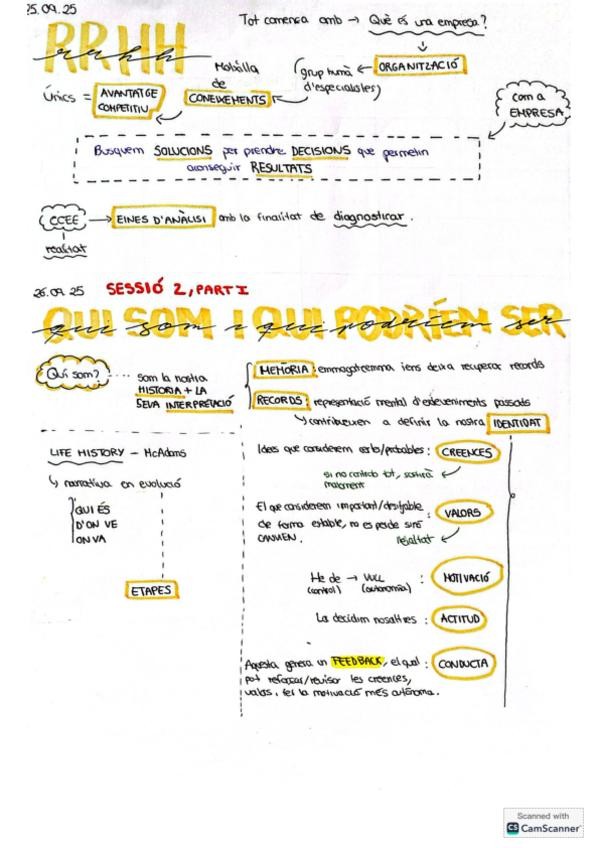 25.09.25
Tot comença amb → Què és una empresa?
RRHH
rrhh
ORGANITZACIÓ
(grup humà
d'especialistes)
Motxilla
de
CONEIXEMENTS
Únics = AVANTATGE
COMPETITIU
Com a
EMPRESA
Busquem SOLUCIONS per prendre DECISIONS que permetin
aconseguir RESULTATS
CCEE → EINES D'ANÀLISI amb la finalitat de diagnosticar.
realitat
26.09.25 SESSIÓ 2, PART I
QUI SOM I QUI PODRÍEM SER
Qui som? ···· som la nostra
HISTÒRIA + LA
SEVA INTERPRETACIÓ
MEMÒRIA: emmagatzema i ens deixa recuperar records
RECORDS: representació mental d'esdeveniments passats
↳ contribueixen a definir la nostra IDENTITAT
LIFE HISTORY – McAdams
↳ narrativa en evolució
QUI ÉS
D'ON VE
ON VA
ETAPES
Idees que considerem certs/probables: CREENCES
si no controlo tot, sortirà
malament
El que considerem important/desitjable
de forma estable, no es perde sinó
CANVIEN.
: VALORS
resultat
He de → VULL : MOTIVACIÓ
(control) (autonomia)
La decidim nosaltres : ACTITUD
Aquesta genera un FEEDBACK, el qual : CONDUCTA
pot reforçar/revisar les creences,
valors i fer la motivació més autònoma.
Scanned with
CS CamScanner